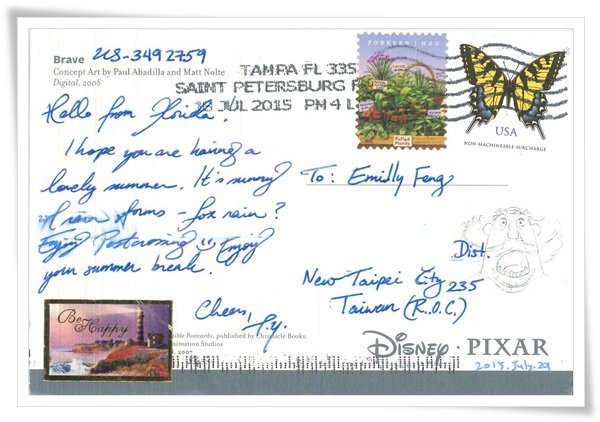 Brave US-3492759
Concept Art by Paul Abadilla and Matt Nolte
Digital, 2008
TAMPA FL 335
SAINT PETERSBURG
18 JUL 2015 PM 4 L
FOREVER | USA
Potted
Plants
USA
NON-MACHINEABLE SURCHARGE
Hello from Florida!
I hope you are having a
lovely summer. It's sunny
storms - fox rain?
Enjoy Postcrossing :), Enjoy
your summer break.
Cheers,
T.Y.
To: Emilly Feng
Dist.
New Taipei City 235
Taiwan (R.O.C.)
Be
Happy
Postcards, published by Chronicle Books.
Animation Studios
2007
DISNEY · PIXAR
2015. July. 29